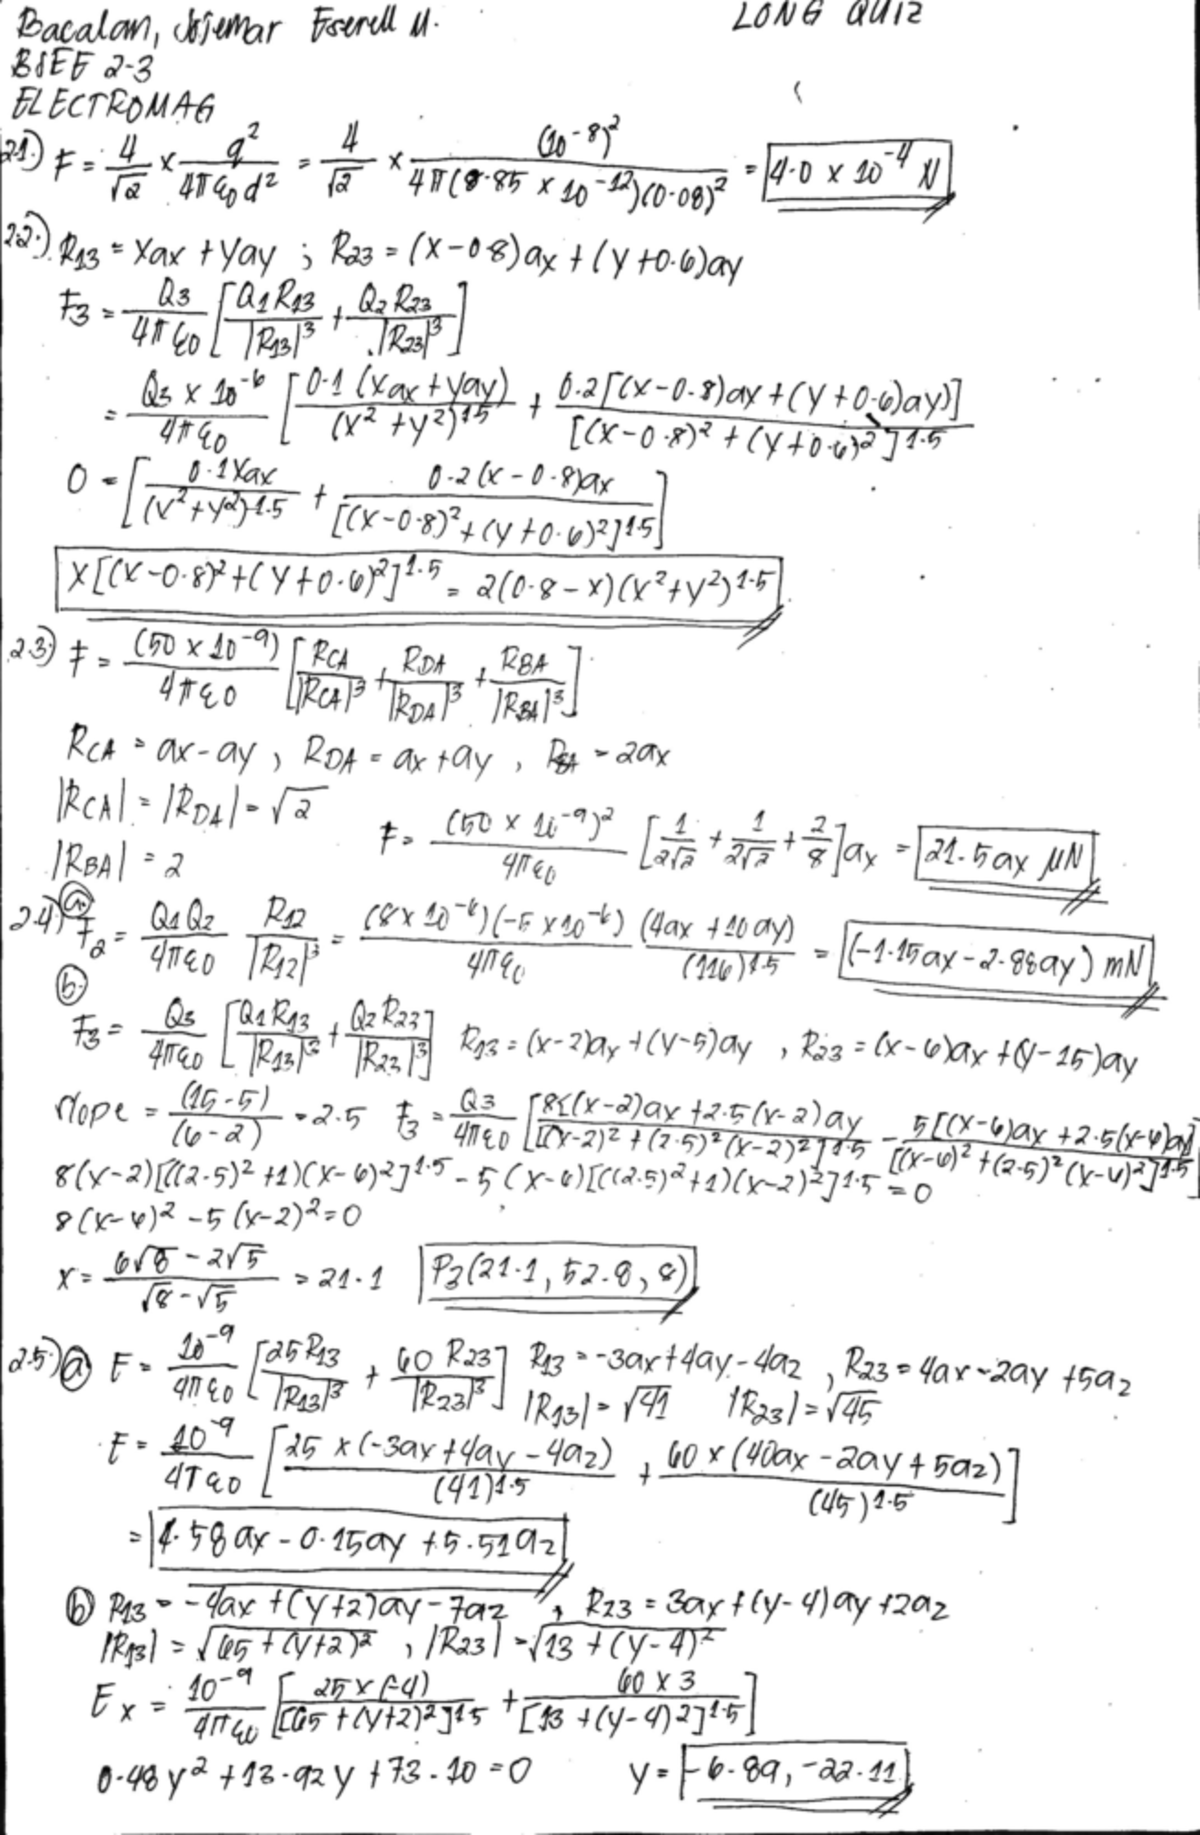 Bacalan, Jojemar Eserell M. LONG QUIZ
BSEE 2-3
ELECTROMAG
2.1.) F = 4/√2 × q²/4πε0d² = 4/√2 × (10⁻⁸)²/4π(8.85 × 10⁻¹²)(0.08)² = 4.0 × 10⁻⁴ N
2.2.) R13 = Xax + Yay ; R23 = (X-0.8)ax + (Y+0.6)ay
F3 = Q3/4πε0 [Q1R13/|R13|³ + Q2R23/|R23|³]
= Q3 × 10⁻⁶/4πε0 [0.1(Xax+Yay)/(X²+Y²)1.5 + 0.2[(X-0.8)ax+(Y+0.6)ay)]/[(X-0.8)²+(Y+0.6)²]1.5
0 = [0.1Xax/(X²+Y²)1.5 + 0.2(x-0.8)ax/[(X-0.8)²+(Y+0.6)²]1.5]
X[(X-0.8)²+(Y+0.6)²]1.5 = 2(0.8-x)(x²+y²)1.5
2.3.) F = (50 × 10⁻⁹)/4πε0 [RCA/|RCA|³ + RDA/|RDA|³ + RBA/|RBA|³]
RCA = ax-ay, RDA = ax+ay, RBA = 2ax
|RCA| = |RDA| = √2
|RBA| = 2 F = (50 × 10⁻⁹)²/4πε0 [1/2√2 + 1/2√2 + 2/8]ax = 21.5ax μN
2.4.) a. F2 = Q1Q2/4πε0 R12/|R12|³ = (8×10⁻⁶)(-5×10⁻⁶)/4πε0 (4ax+10ay)/(116)1.5 = (-1.15ax-2.88ay) mN
b.
F3 = Q3/4πε0 [Q1R13/|R13|³ + Q2R23/|R23|³] R13 = (x-2)ax+(Y-5)ay , R23 = (x-6)ax+(y-15)ay
slope = (15-5)/(6-2) = 2.5 F3 = Q3/4πε0 [8[(x-2)ax+2.5(x-2)ay/[(x-2)²+(2.5)²(x-2)²]1.5 - 5[(x-6)ax+2.5(x-6)ay]/[(x-6)²+(2.5)²(x-6)²]1.5]
8(x-2)[((2.5)²+1)(x-6)²]1.5 - 5(x-6)[((2.5)²+1)(x-2)²]1.5 = 0
8(x-6)² - 5(x-2)² = 0
x = 6√8 - 2√5/√8 - √5 = 21.1 P3(21.1, 52.8, 8)
2.5.) a E = 10⁻⁹/4πε0 [25R13/|R13|³ + 60R23/|R23|³] R13 = -3ax+4ay-4az , R23 = 4ax-2ay+5az
|R13| = √41 |R23| = √45
E = 10⁻⁹/4πε0 [25×(-3ax+4ay-4az)/(41)1.5 + 60×(40ax-2ay+5az)/(45)1.5]
= 4.58ax - 0.15ay + 5.51az
b R13 = -4ax+(Y+2)ay-7az , R23 = 3ax+(y-4)ay+2az
|R13| = √65+(Y+2)² , |R23| = √13+(Y-4)²
Ex = 10⁻⁹/4πε0 [25×(-4)/[65+(Y+2)²]1.5 + 60×3/[13+(Y-4)2]1.5]
0.48y² + 13.92y + 73.10 = 0 y = -6.89, -22.11